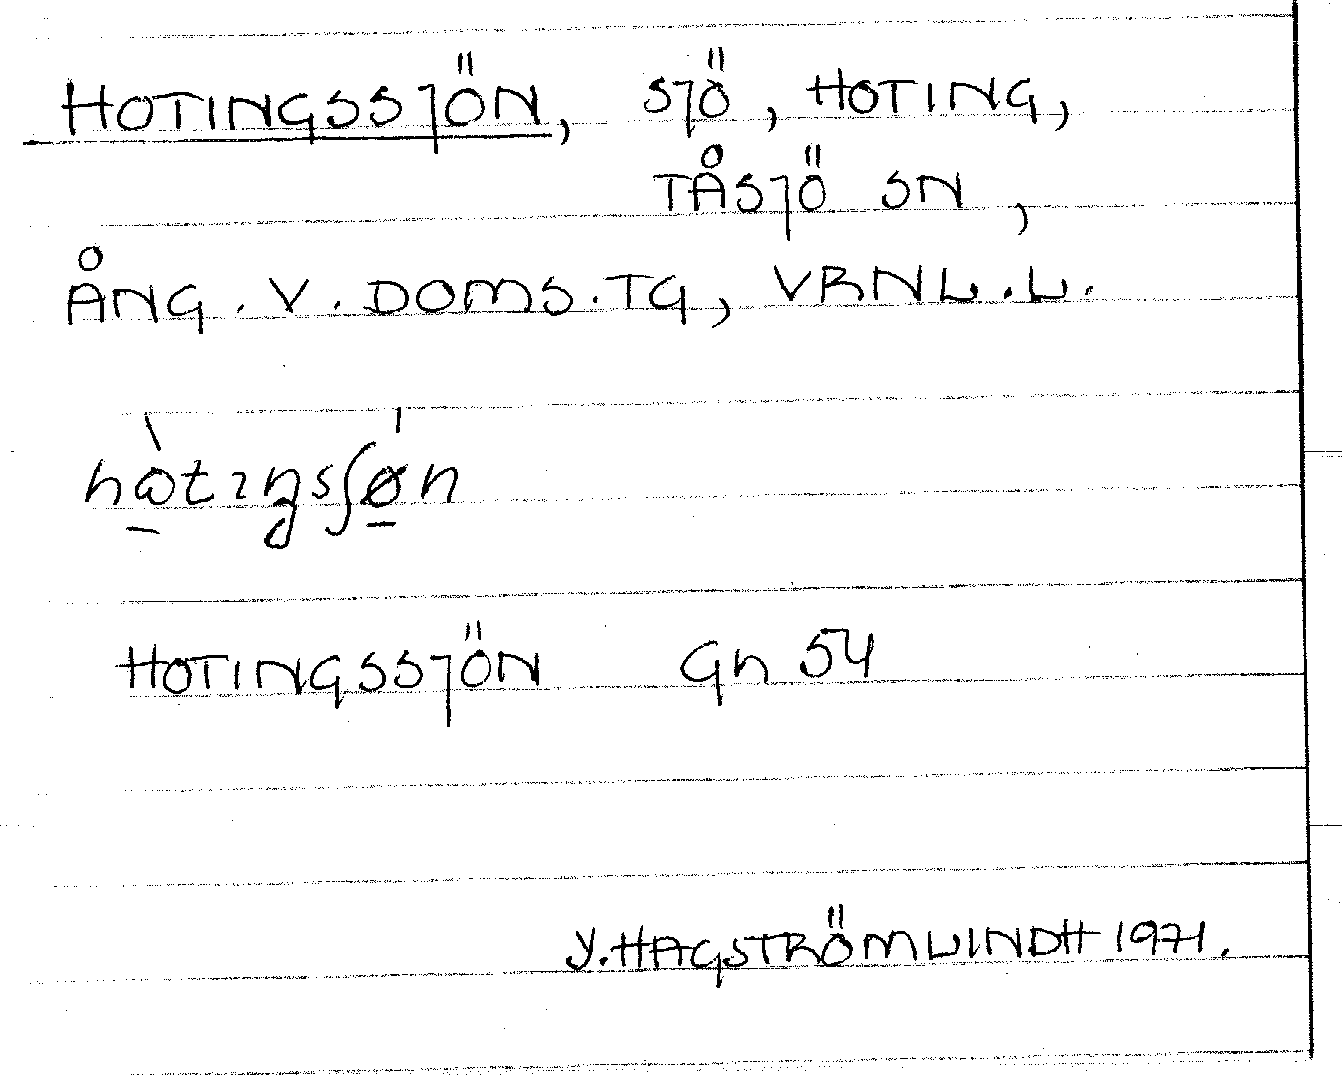 HOTINGSSJÖN, SJÖ, HOTING,
TÅSJÖ SN,
ÅNG. V. DOMS. TG, VRNL. L.
hòtıŋsʃǿn
HOTINGSSJÖN Gn 54
Y. HAGSTRÖM LINDH 1971.